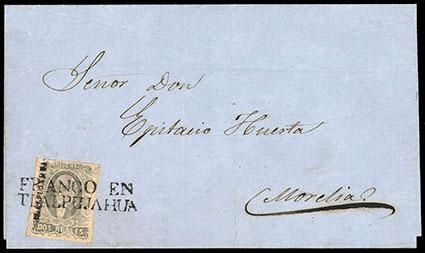 Señor Don
Epitacio Huerta
Morelia
FRANCO EN
TLALPUJAHUA
DOS REALES